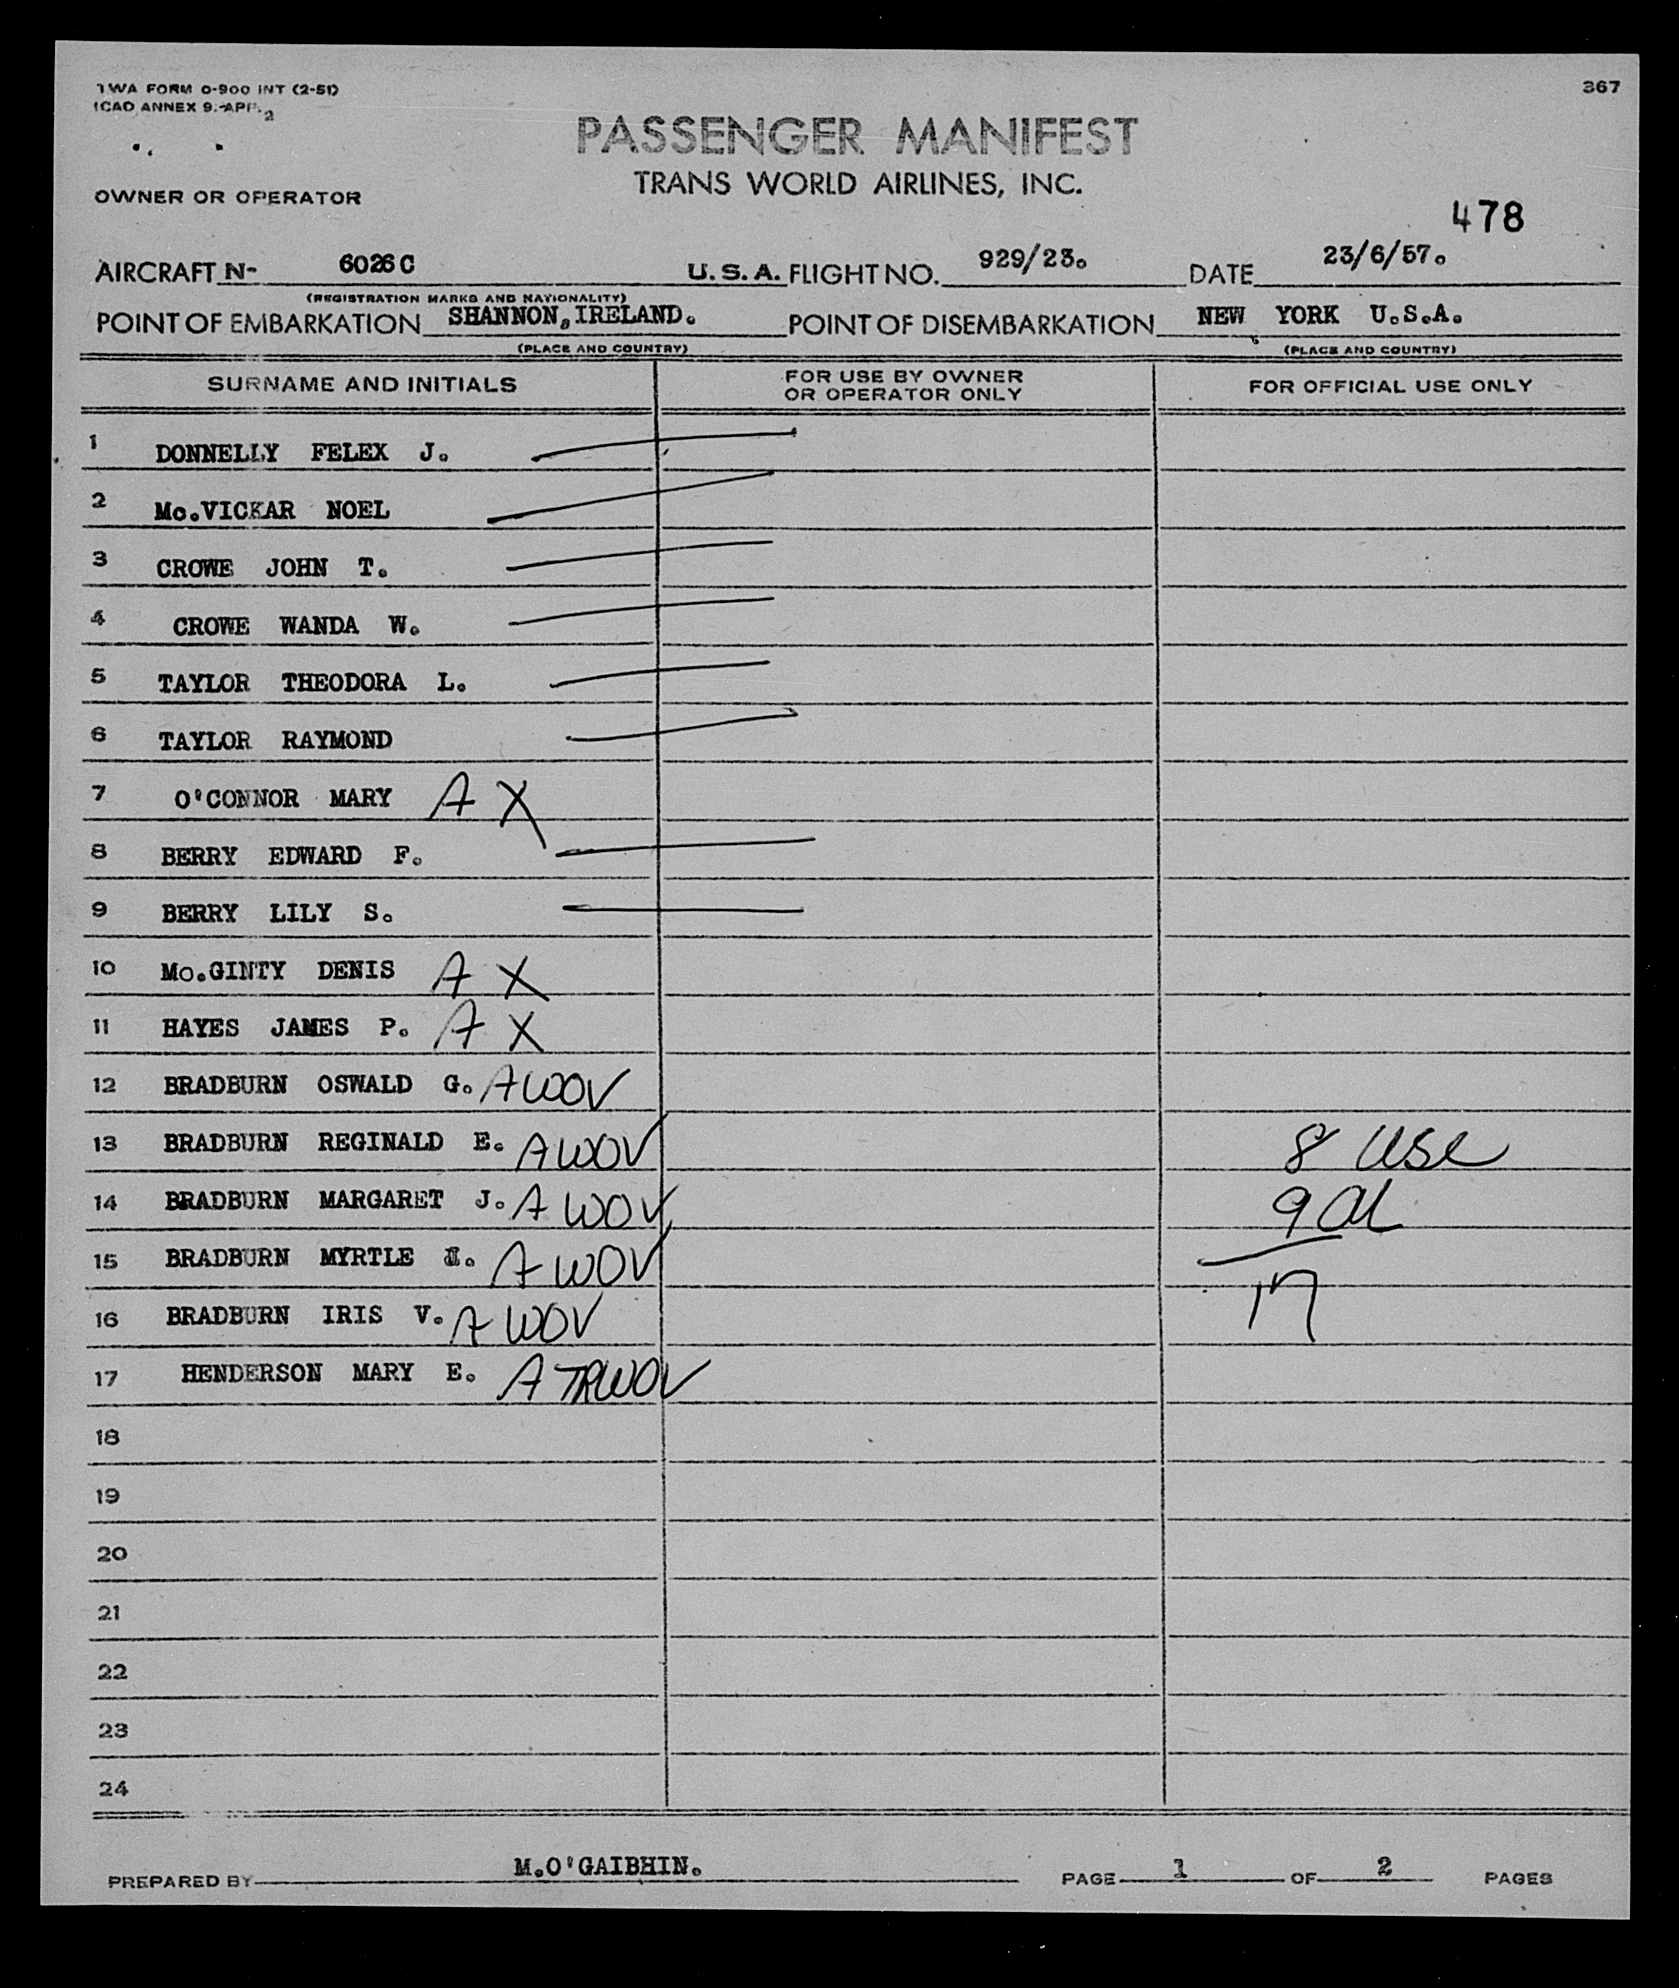 TWA FORM O-900 INT (2-51)
367
ICAO ANNEX 9.-APP. 2
PASSENGER MANIFEST
TRANS WORLD AIRLINES, INC.
OWNER OR OPERATOR
478
AIRCRAFT N- 6026C U.S.A. FLIGHT NO. 929/23. DATE 23/6/57.
(REGISTRATION MARKS AND NATIONALITY)
POINT OF EMBARKATION SHANNON,IRELAND. POINT OF DISEMBARKATION NEW YORK U.S.A.
(PLACE AND COUNTRY) (PLACE AND COUNTRY)
SURNAME AND INITIALS FOR USE BY OWNER OR OPERATOR ONLY FOR OFFICIAL USE ONLY
1 DONNELLY FELEX J.
2 Mc.VICKAR NOEL
3 CROWE JOHN T.
4 CROWE WANDA W.
5 TAYLOR THEODORA L.
6 TAYLOR RAYMOND
7 O'CONNOR MARY A X
8 BERRY EDWARD F.
9 BERRY LILY S.
10 Mc.GINTY DENIS A X
11 HAYES JAMES P. A X
12 BRADBURN OSWALD G. A WOV
13 BRADBURN REGINALD E. A WOV 8 USC
14 BRADBURN MARGARET J. A WOV 9 al
15 BRADBURN MYRTLE A WOV
16 BRADBURN IRIS V. A WOV 17
17 HENDERSON MARY E. A TRWOV
18
19
20
21
22
23
24
PREPARED BY M.O'GAIBHIN. PAGE 1 OF 2 PAGES